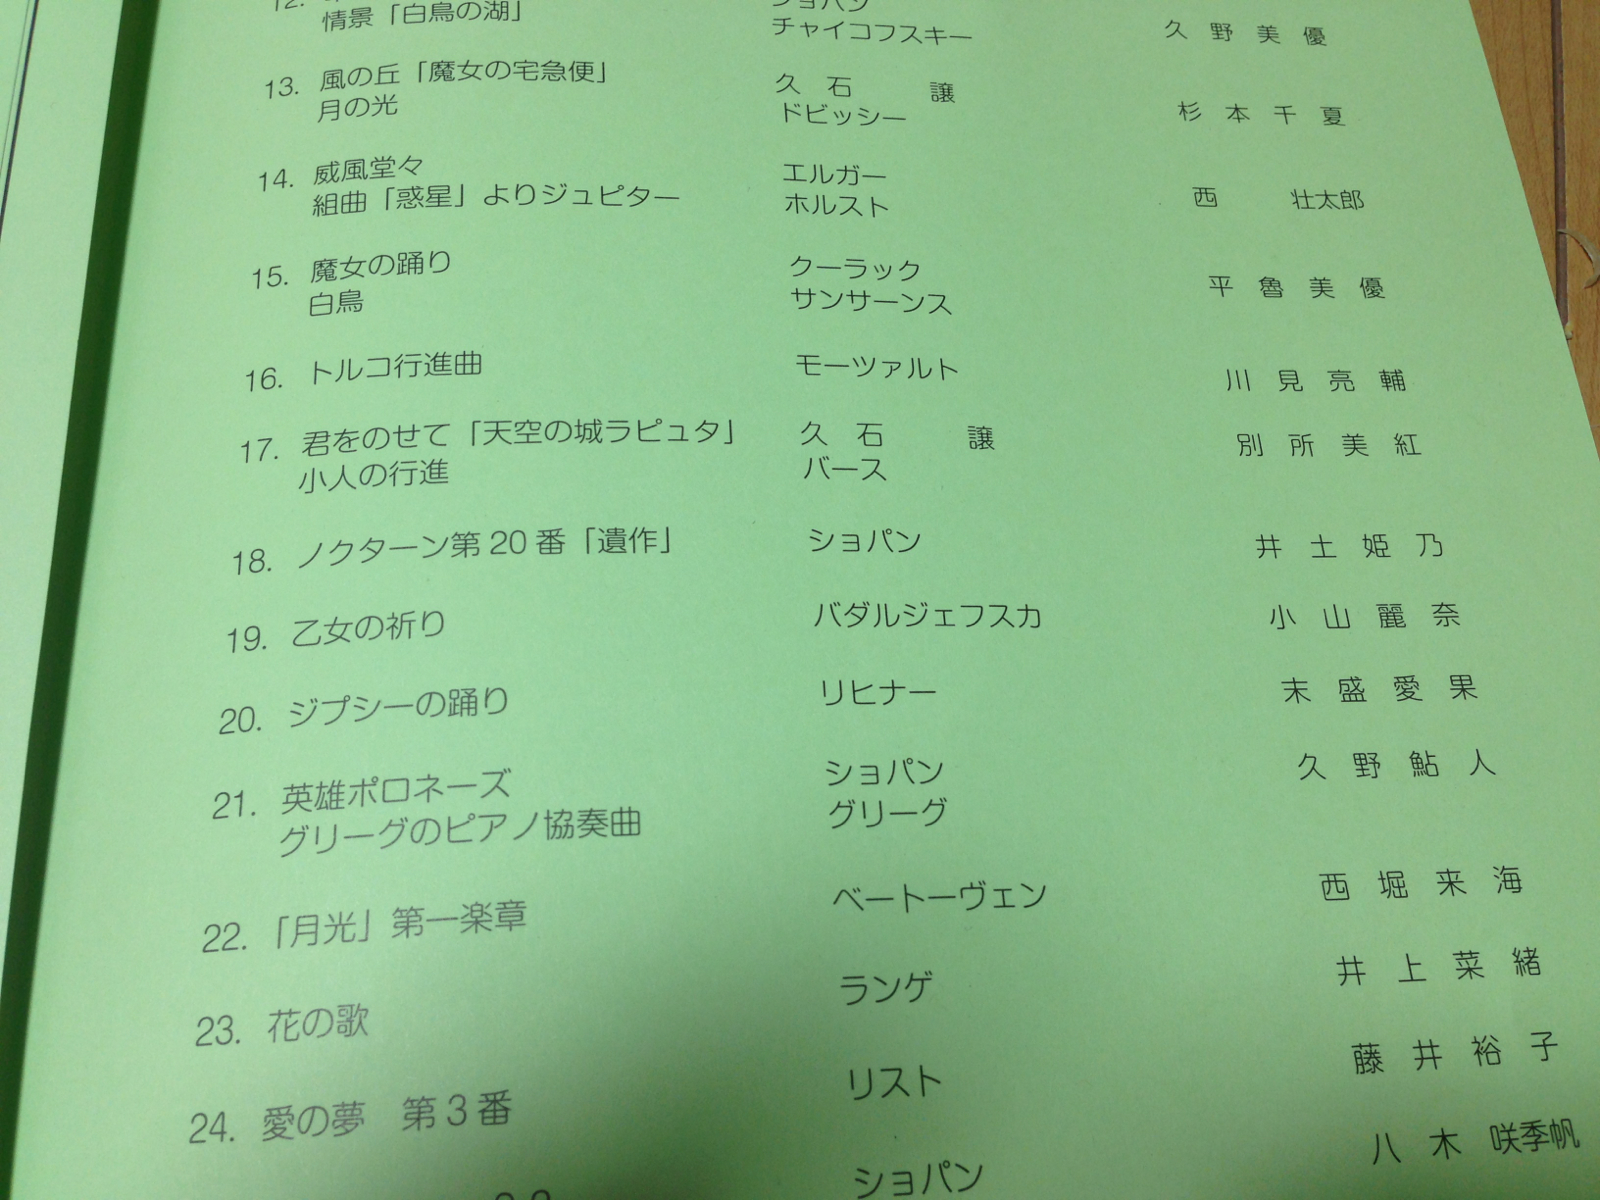 12.
ショパン
情景「白鳥の湖」 チャイコフスキー 久野美優
13. 風の丘「魔女の宅急便」 久石 譲
月の光 ドビッシー 杉本千夏
14. 威風堂々 エルガー
組曲「惑星」よりジュピター ホルスト 西 壮太郎
15. 魔女の踊り クーラック
白鳥 サンサーンス 平魯美優
16. トルコ行進曲 モーツァルト 川見亮輔
17. 君をのせて「天空の城ラピュタ」 久石 譲 別所美紅
小人の行進 バース
18. ノクターン第20番「遺作」 ショパン 井土姫乃
19. 乙女の祈り バダルジェフスカ 小山麗奈
20. ジプシーの踊り リヒナー 末盛愛果
21. 英雄ポロネーズ ショパン 久野鮎人
グリーグのピアノ協奏曲 グリーグ
22. 「月光」第一楽章 ベートーヴェン 西堀来海
23. 花の歌 ランゲ 井上菜緒
24. 愛の夢 第3番 リスト 藤井裕子
ショパン 八木 咲季帆